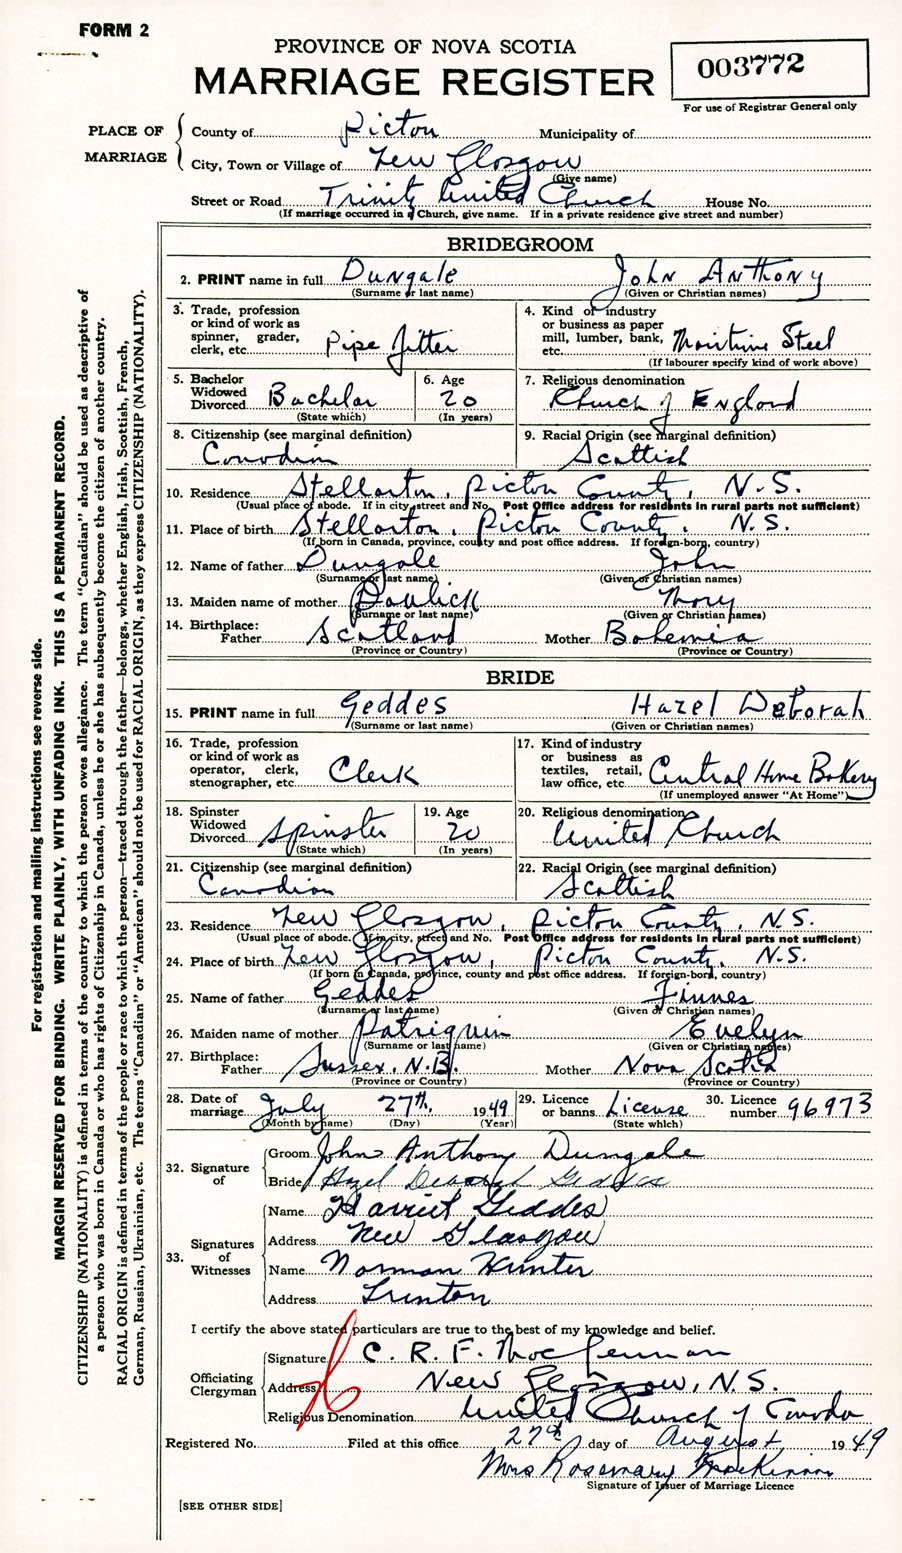 FORM 2
PROVINCE OF NOVA SCOTIA
MARRIAGE REGISTER
003772
For use of Registrar General only
PLACE OF MARRIAGE
County of Pictou Municipality of
City, Town or Village of New Glasgow
(Give name)
Street or Road Trinity United Church House No.
(If marriage occurred in a Church, give name. If in a private residence give street and number)
BRIDEGROOM
2. PRINT name in full Dungale John Anthony
(Surname or last name) (Given or Christian names)
3. Trade, profession or kind of work as spinner, grader, clerk, etc. Pipe fitter
4. Kind of industry or business as paper mill, lumber, bank, etc. Maritime Steel
(If labourer specify kind of work above)
5. Bachelor Widowed Divorced Bachelor
(State which)
6. Age 20
(In years)
7. Religious denomination
Church of England
8. Citizenship (see marginal definition)
Canadian
9. Racial Origin (see marginal definition)
Scottish
10. Residence Stellarton, Pictou County, N.S.
(Usual place of abode. If in city, street and No. Post Office address for residents in rural parts not sufficient)
11. Place of birth Stellarton, Pictou County, N.S.
(If born in Canada, province, county and post office address. If foreign-born, country)
12. Name of father Dungale John
(Surname or last name) (Given or Christian names)
13. Maiden name of mother Pavlick Mary
(Surname or last name) (Given or Christian names)
14. Birthplace:
Father Scotland Mother Bohemia
(Province or Country) (Province or Country)
BRIDE
15. PRINT name in full Geddes Hazel Deborah
(Surname or last name) (Given or Christian names)
16. Trade, profession or kind of work as operator, clerk, stenographer, etc. Clerk
17. Kind of industry or business as textiles, retail, law office, etc. Central Home Bakery
(If unemployed answer "At Home")
18. Spinster Widowed Divorced Spinster
(State which)
19. Age 20
(In years)
20. Religious denomination
United Church
21. Citizenship (see marginal definition)
Canadian
22. Racial Origin (see marginal definition)
Scottish
23. Residence New Glasgow, Pictou County, N.S.
(Usual place of abode. If in city, street and No. Post Office address for residents in rural parts not sufficient)
24. Place of birth New Glasgow, Pictou County, N.S.
(If born in Canada, province, county and post office address. If foreign-born, country)
25. Name of father Geddes Finnes
(Surname or last name) (Given or Christian names)
26. Maiden name of mother Patriquin Evelyn
(Surname or last name) (Given or Christian names)
27. Birthplace:
Father Sussex, N.B. Mother Nova Scotia
(Province or Country) (Province or Country)
28. Date of marriage July 27th, 1949
(Month by name) (Day) (Year)
29. Licence or banns License
(State which)
30. Licence number 96973
32. Signature of
Groom John Anthony Dungale
Bride Hazel Deborah Geddes
33. Signatures of Witnesses
Name Harriet Geddes
Address New Glasgow
Name Norman Hunter
Address Trenton
I certify the above stated particulars are true to the best of my knowledge and belief.
Officiating Clergyman
Signature C. R. F. MacLennan
Address New Glasgow, N.S.
Religious Denomination United Church of Canada
Registered No. Filed at this office 27th day of August 1949
Mrs Rosemary MacKinnon
Signature of Issuer of Marriage Licence
[SEE OTHER SIDE]
For registration and mailing instructions see reverse side.
MARGIN RESERVED FOR BINDING. WRITE PLAINLY, WITH UNFADING INK. THIS IS A PERMANENT RECORD.
CITIZENSHIP (NATIONALITY) is defined in terms of the country to which the person owes allegiance. The term "Canadian" should be used as descriptive of
a person who was born in Canada or who has rights of Citizenship in Canada, unless he or she has subsequently become the citizen of another country.
RACIAL ORIGIN is defined in terms of the people or race to which the person—traced through the father—belongs, whether English, Irish, Scottish, French,
German, Russian, Ukrainian, etc. The terms "Canadian" or "American" should not be used for RACIAL ORIGIN, as they express CITIZENSHIP (NATIONALITY).